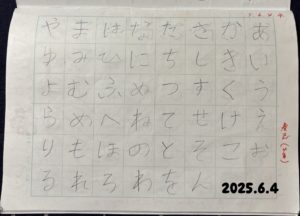 あいうえお
かきくけこ
さしすせそん
たちつてとを
なにぬねのわ
はひふへほろ
まみむめもれ
やゆよらりる
2025.6.4